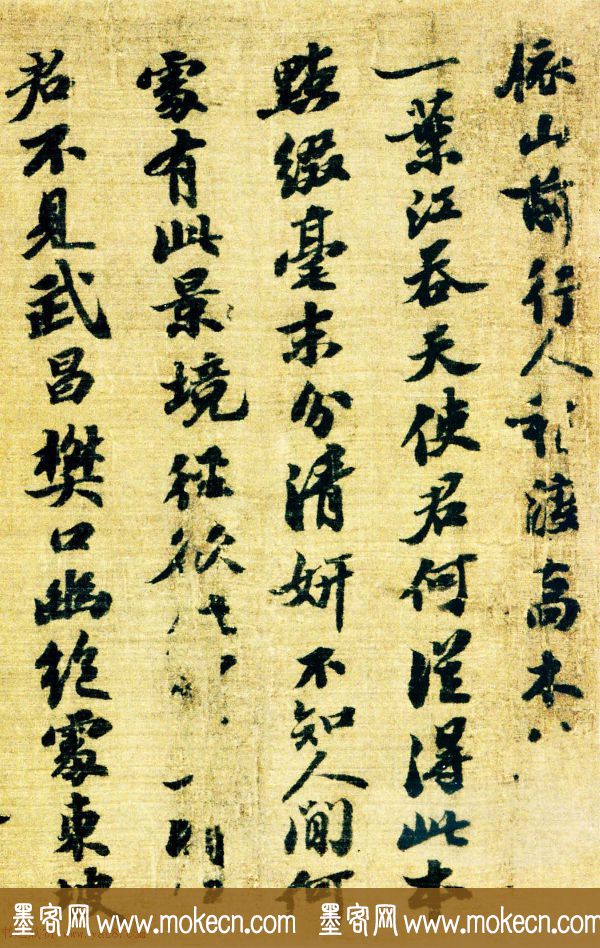 依山前行人稍渡高木
一葉江吞天使君何從得此本
點綴毫末分清妍不知人間何
處有此景境徑欲往
君不見武昌樊口幽絕處東坡
墨客网 www.mokecn.com 墨客网 www.mokecn.com